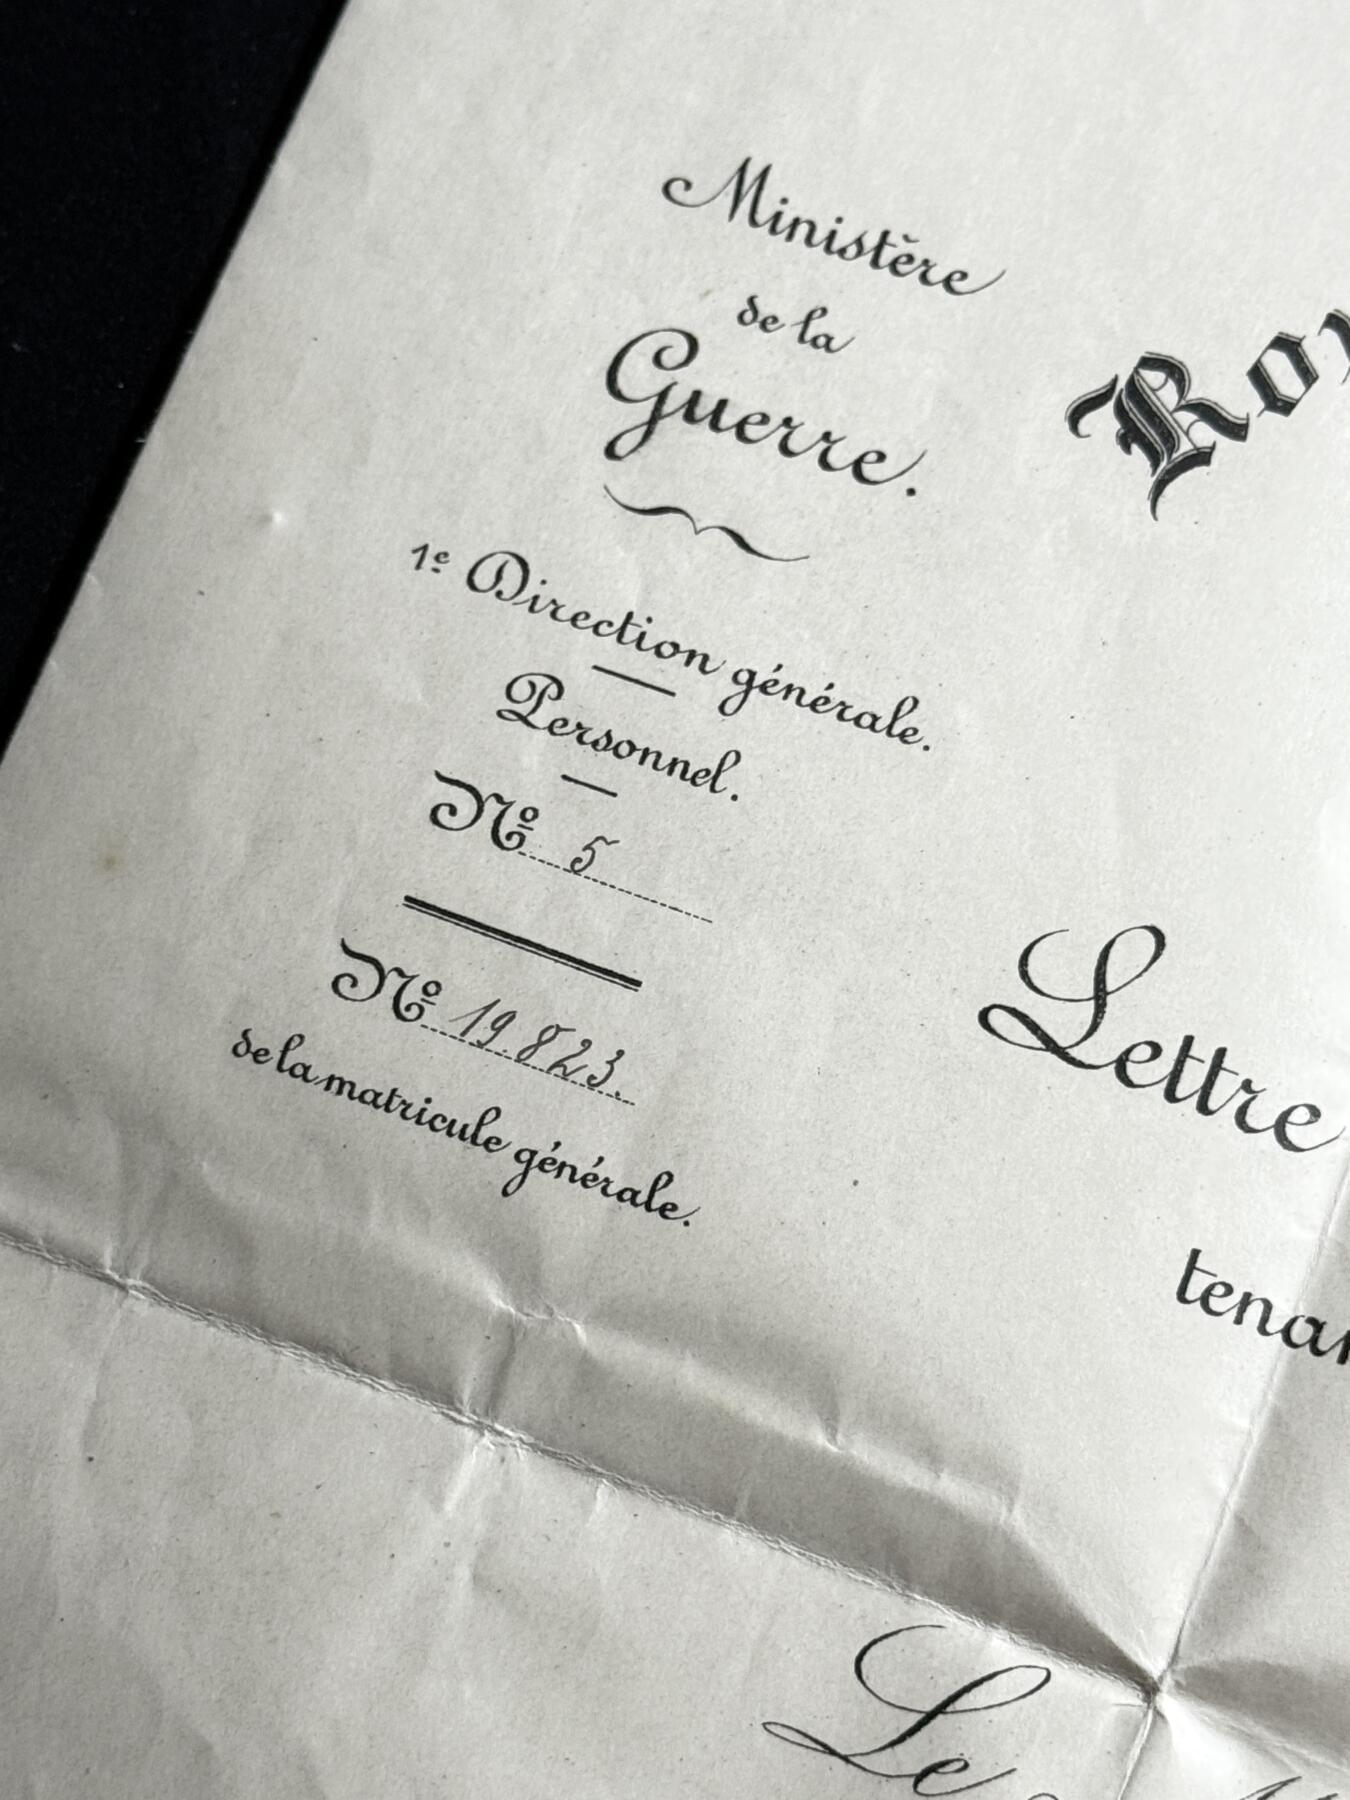 Ministère
de la
Guerre.
1e Direction générale.
Personnel.
No 5
No 19.823.
de la matricule générale.
Lettre
Le